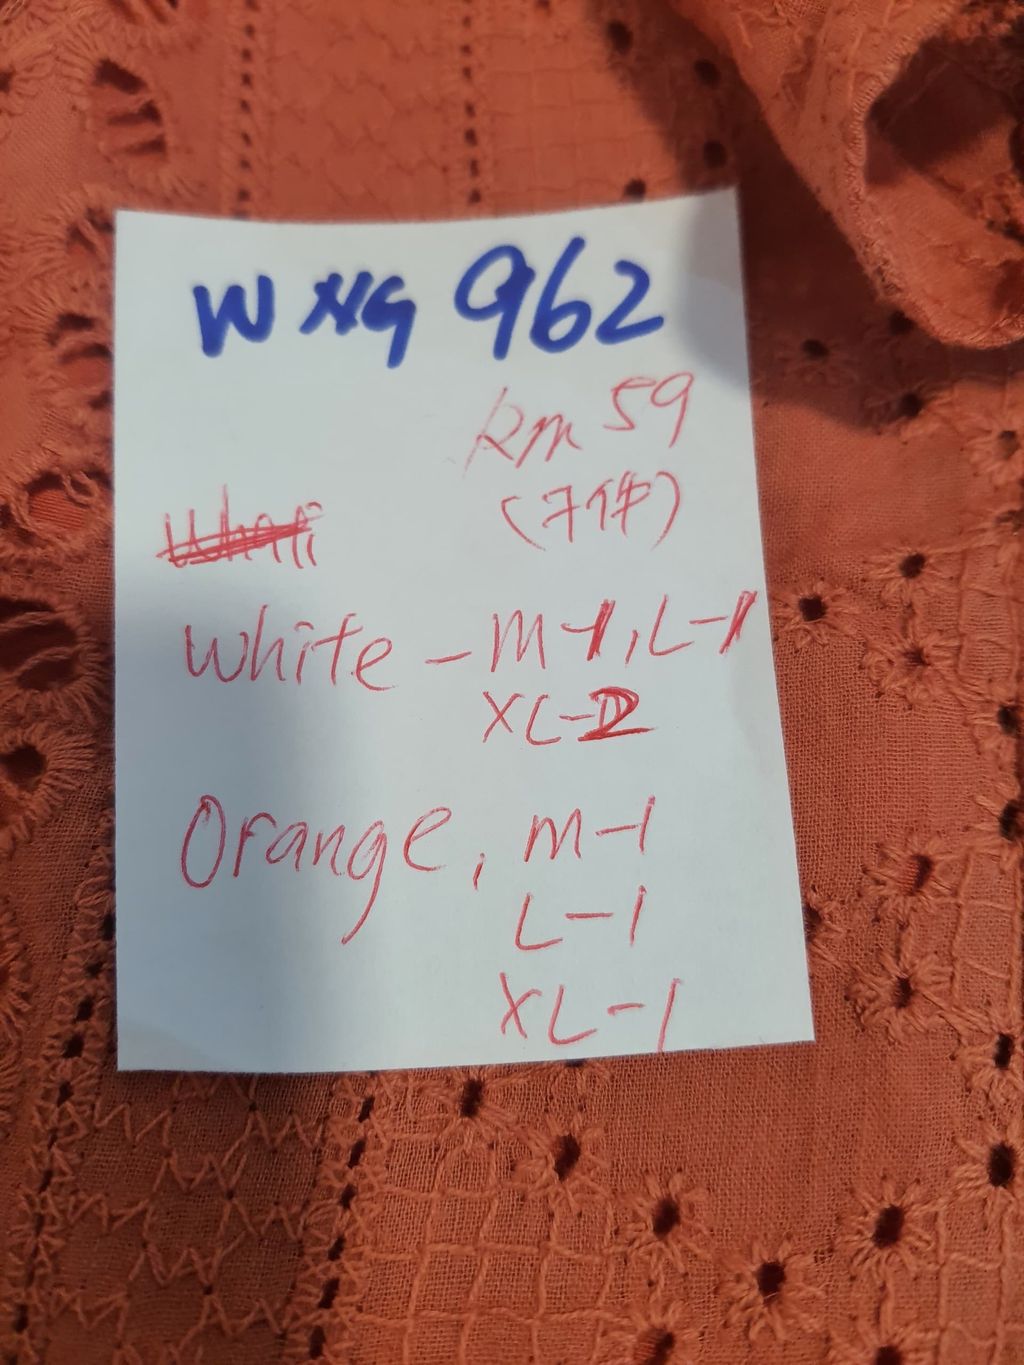 WNG 962
Rm 59
(7件)
White - M-1, L-1
XL-2
Orange, M-1
L-1
XL-1